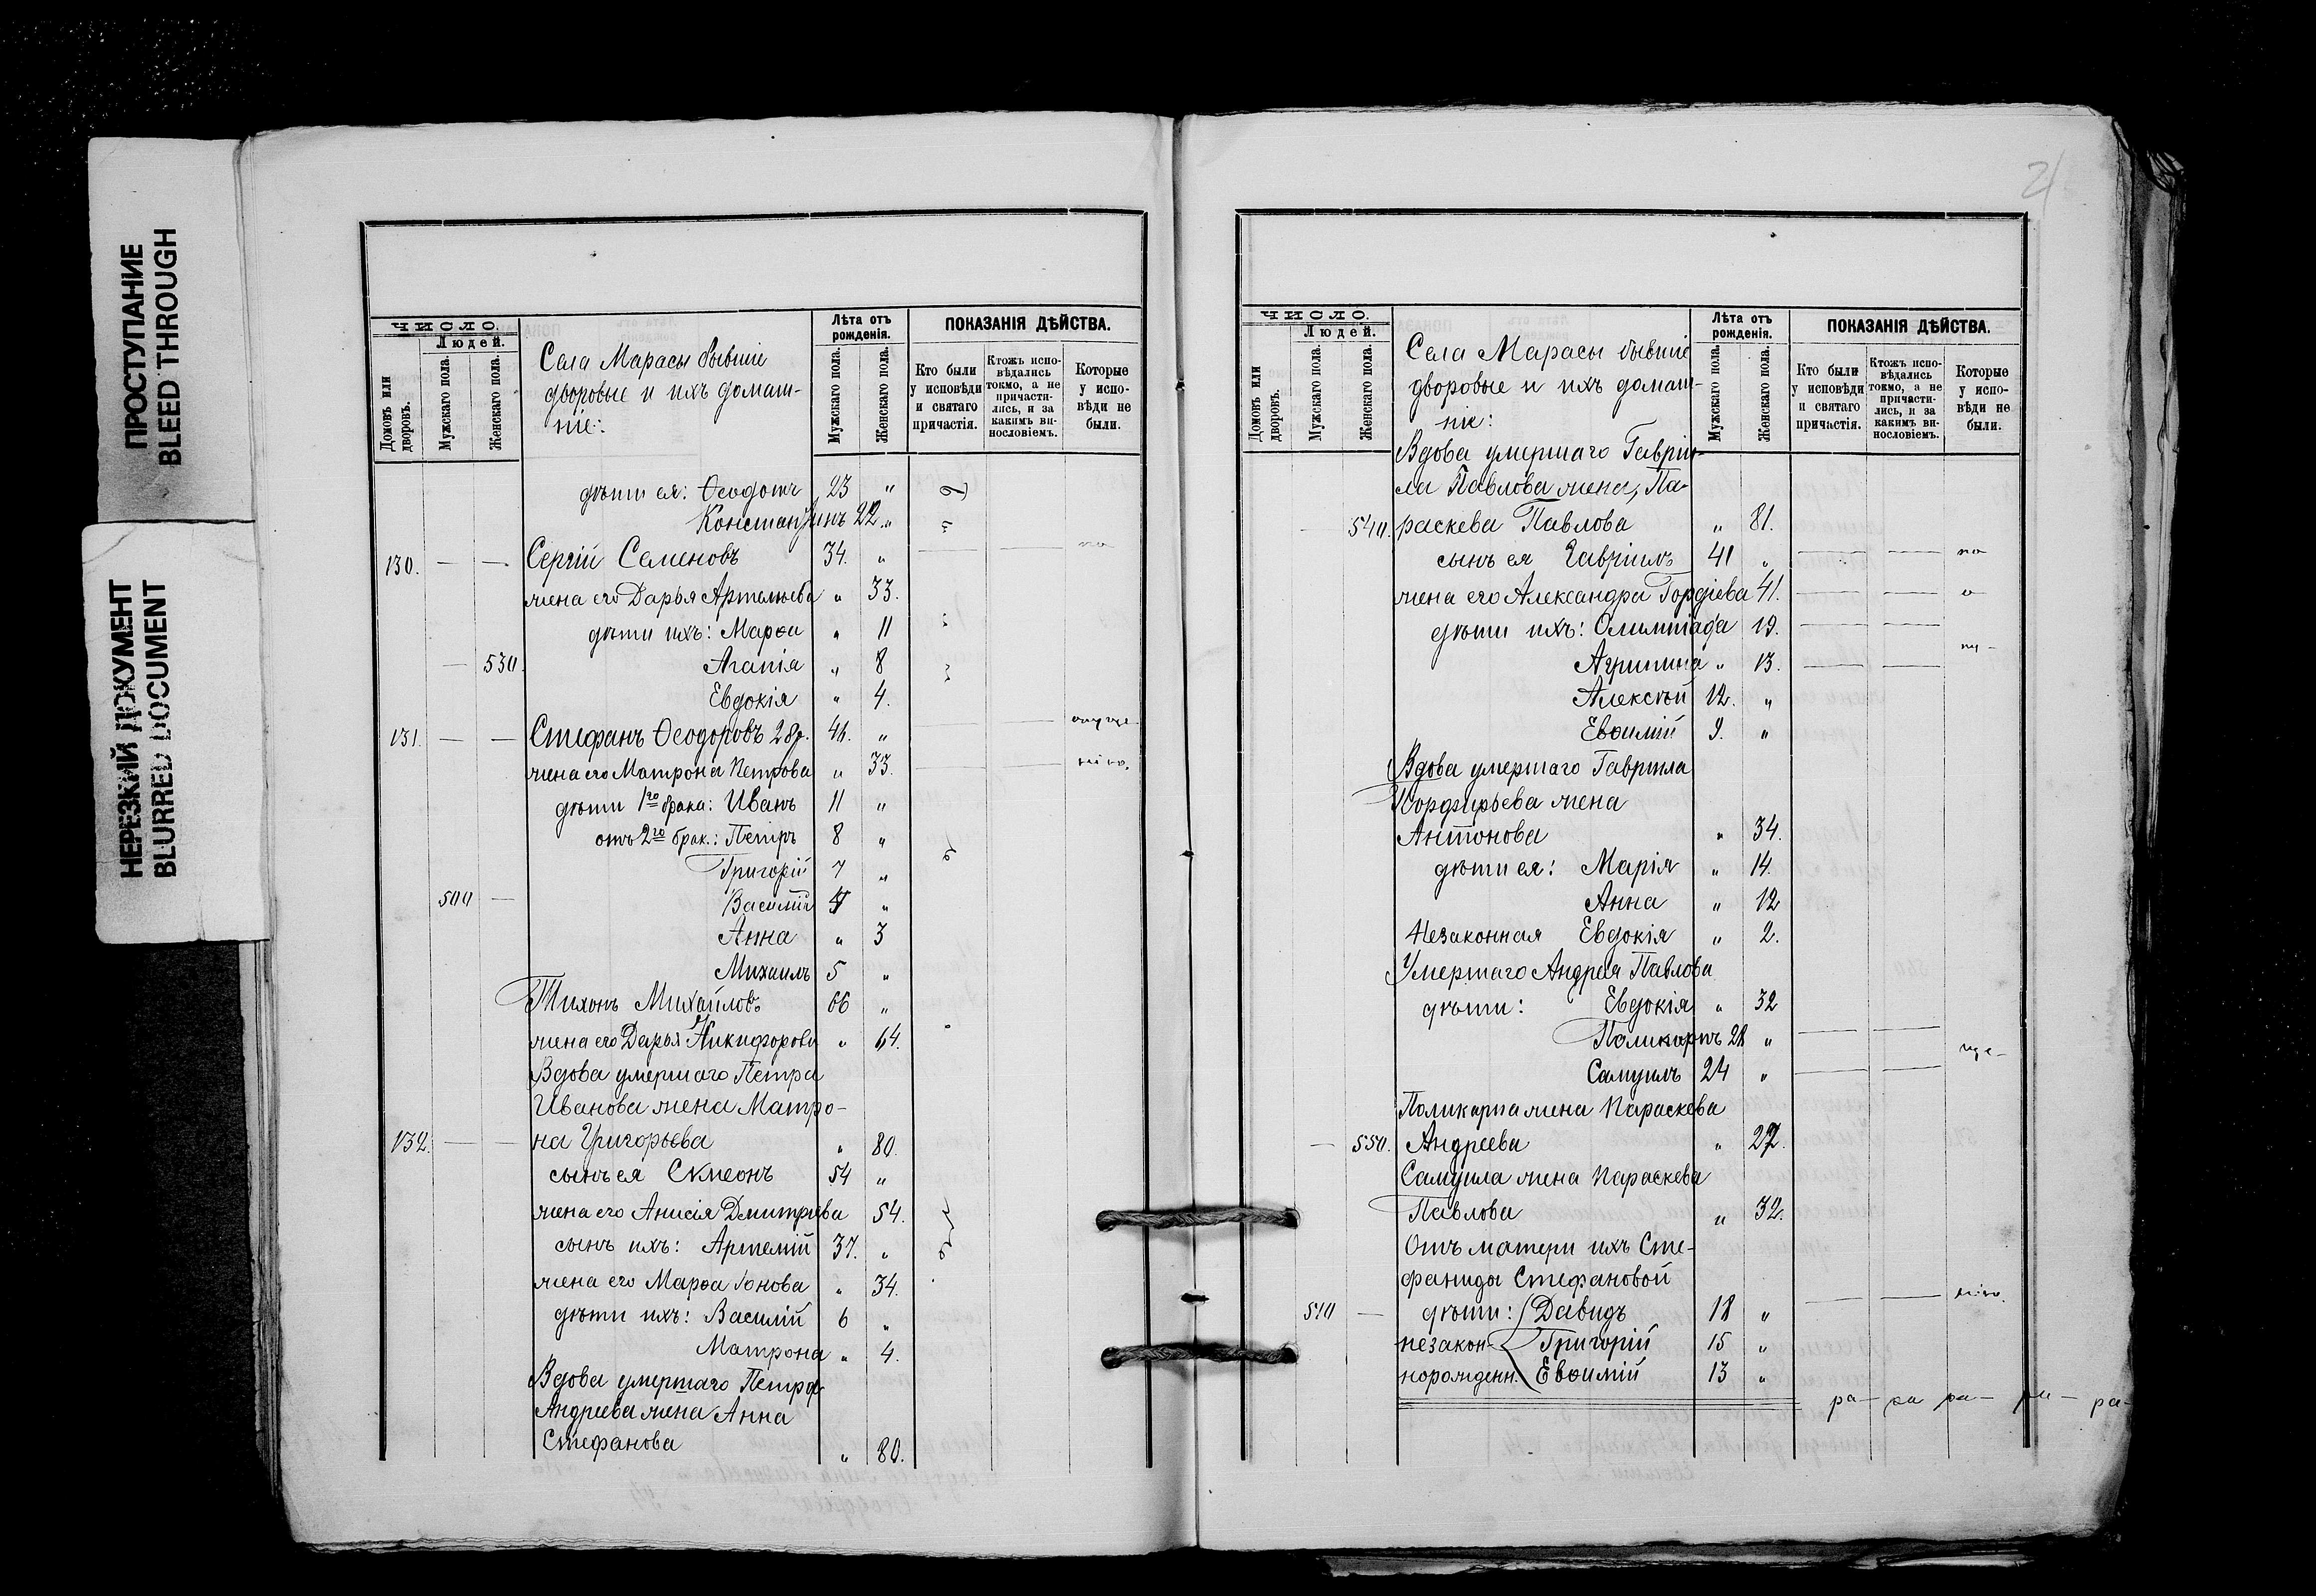 ПРОСТУПАНИЕ
BLEED THROUGH
НЕРЕЗКИЙ ДОКУМЕНТ
BLURRED DOCUMENT
ЧИСЛО.
Людей.
Домовъ или дворовъ.
Мужскаго пола.
Женскаго пола.
Села Марасы бывшіе
дворовые и ихъ домаш-
ніе:
Лѣта отъ рожденія.
Мужскаго пола.
Женскаго пола.
ПОКАЗАНІЯ ДѢЙСТВА.
Кто были у исповѣди и святаго причастія.
Ктожъ испо-вѣдались токмо, а не причасти-лись, и за какимъ ви-нословіемъ.
Которые у испо-вѣди не были.
дѣти ея: Ѳеодотъ 23 "
Константинъ 22 "
130. — — Сергій Семеновъ 34. "
жена его Дарья Артемьева " 33.
дѣти ихъ: Марѳа " 11
— 530. Агапія " 8
Евдокія " 4.
131. — — Стефанъ Ѳеодоровъ 2 бр. 46. "
жена его Матрона Петрова " 33.
дѣти 1го брака: Иванъ 11 "
отъ 2го брак.: Петръ 8 "
Григорій 7 "
500 — Василій "
Анна " 3
Михаилъ 5 "
Тихонъ Михайловъ 66 "
жена его Дарья Никифорова " 64.
Вдова умершаго Петра
Иванова жена Матро-
132. — — на Григорьева " 80.
сынъ ея Симеонъ 54 "
жена его Анисія Дмитріева 54.
сынъ ихъ: Артемій 37. "
жена его Марѳа Іонова " 34.
дѣти ихъ: Василій 6 "
Матрона " 4.
Вдова умершаго Петра
Андреева жена Анна
Стефанова " 80.
21
ЧИСЛО.
Людей.
Домовъ или дворовъ.
Мужскаго пола.
Женскаго пола.
Села Марасы бывшіе
дворовые и ихъ домаш-
ніе:
Лѣта отъ рожденія.
Мужскаго пола.
Женскаго пола.
ПОКАЗАНІЯ ДѢЙСТВА.
Кто были у исповѣди и святаго причастія.
Ктожъ испо-вѣдались токмо, а не причасти-лись, и за какимъ ви-нословіемъ.
Которые у испо-вѣди не были.
Вдова умершаго Гаврiи-
ла Павлова жена, Па-
— 540. раскева Павлова " 81.
сынъ ея Гавріилъ 41 "
жена его Александра Гордіева 41.
дѣти ихъ: Олимпіада 19.
Агрипина " 13.
Алексѣй 12. "
Евѳимій 9. "
Вдова умершаго Гавріила
Порфирьева жена
Антонова " 34.
дѣти ея: Марія " 14.
Анна " 12
Незаконная Евдокія " 2.
Умершаго Андрея Павлова
дѣти: Евдокія " 32
Поликарпъ 28 "
Самуилъ 24 "
Поликарпа жена Параскева
— 550. Андреева " 27.
Самуила жена Параскева
Павлова " 32.
Отъ матери ихъ Сте-
фаниды Стефановой
510 — дѣти: Давидъ 18 "
незакон- Григорій 15 "
норожденн. Евѳимій 13 "
ра- ра ра- ра- ра-